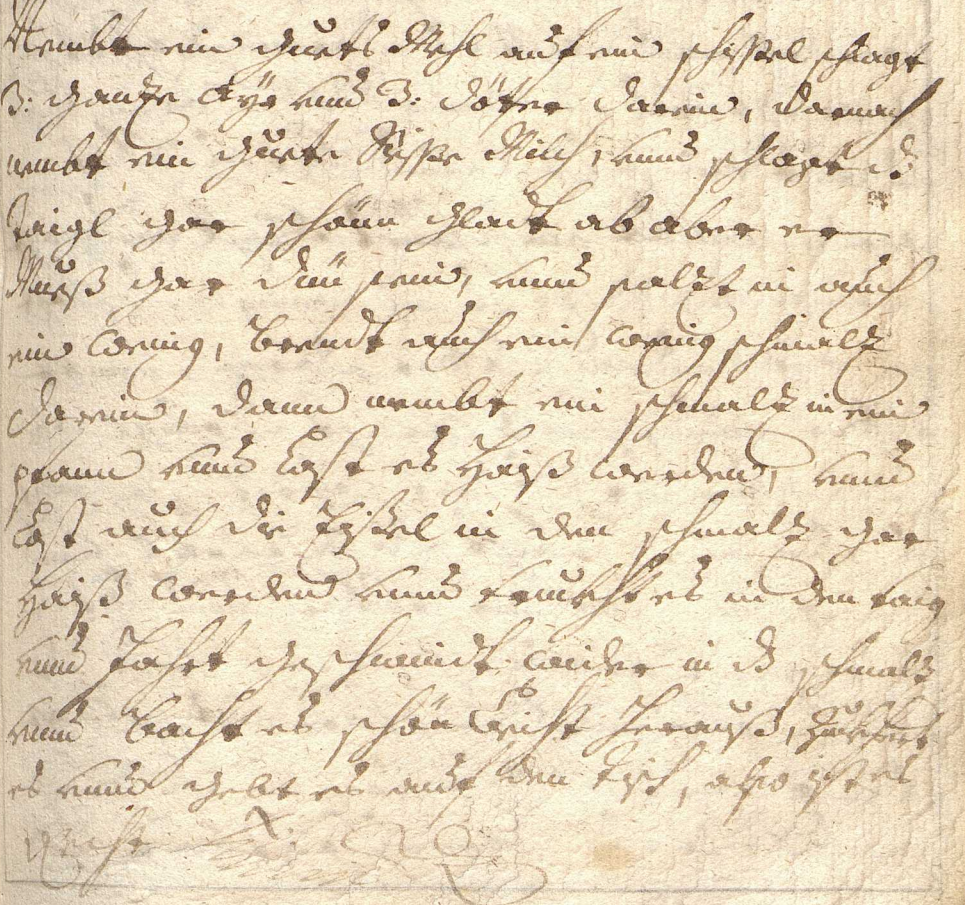 Nembt ein guets Mehl auf ein schissel schlagt
3: ganze Ayr unnd 3: dötter darein, darnach
nembt ein guete Siesse Milch, unnd schlagt ds
taigl gar schönn gladt ab aber er
Mueß gar din sein, unnd salzt in auch
ein wenig, brendt auch ein wenig schmalz
darein, dann nembt ein schmalz in ein
pfann unnd Last es Haiß werden, unnd
Last auch die in den schmalz gar
Haiß werden unnd es in den taig
unnd fahrt geschwindt wider in ds schmalz
unnd bacht es schön herauß, Zukhert
es unnd gebt es auf den tisch, also ist es
Recht